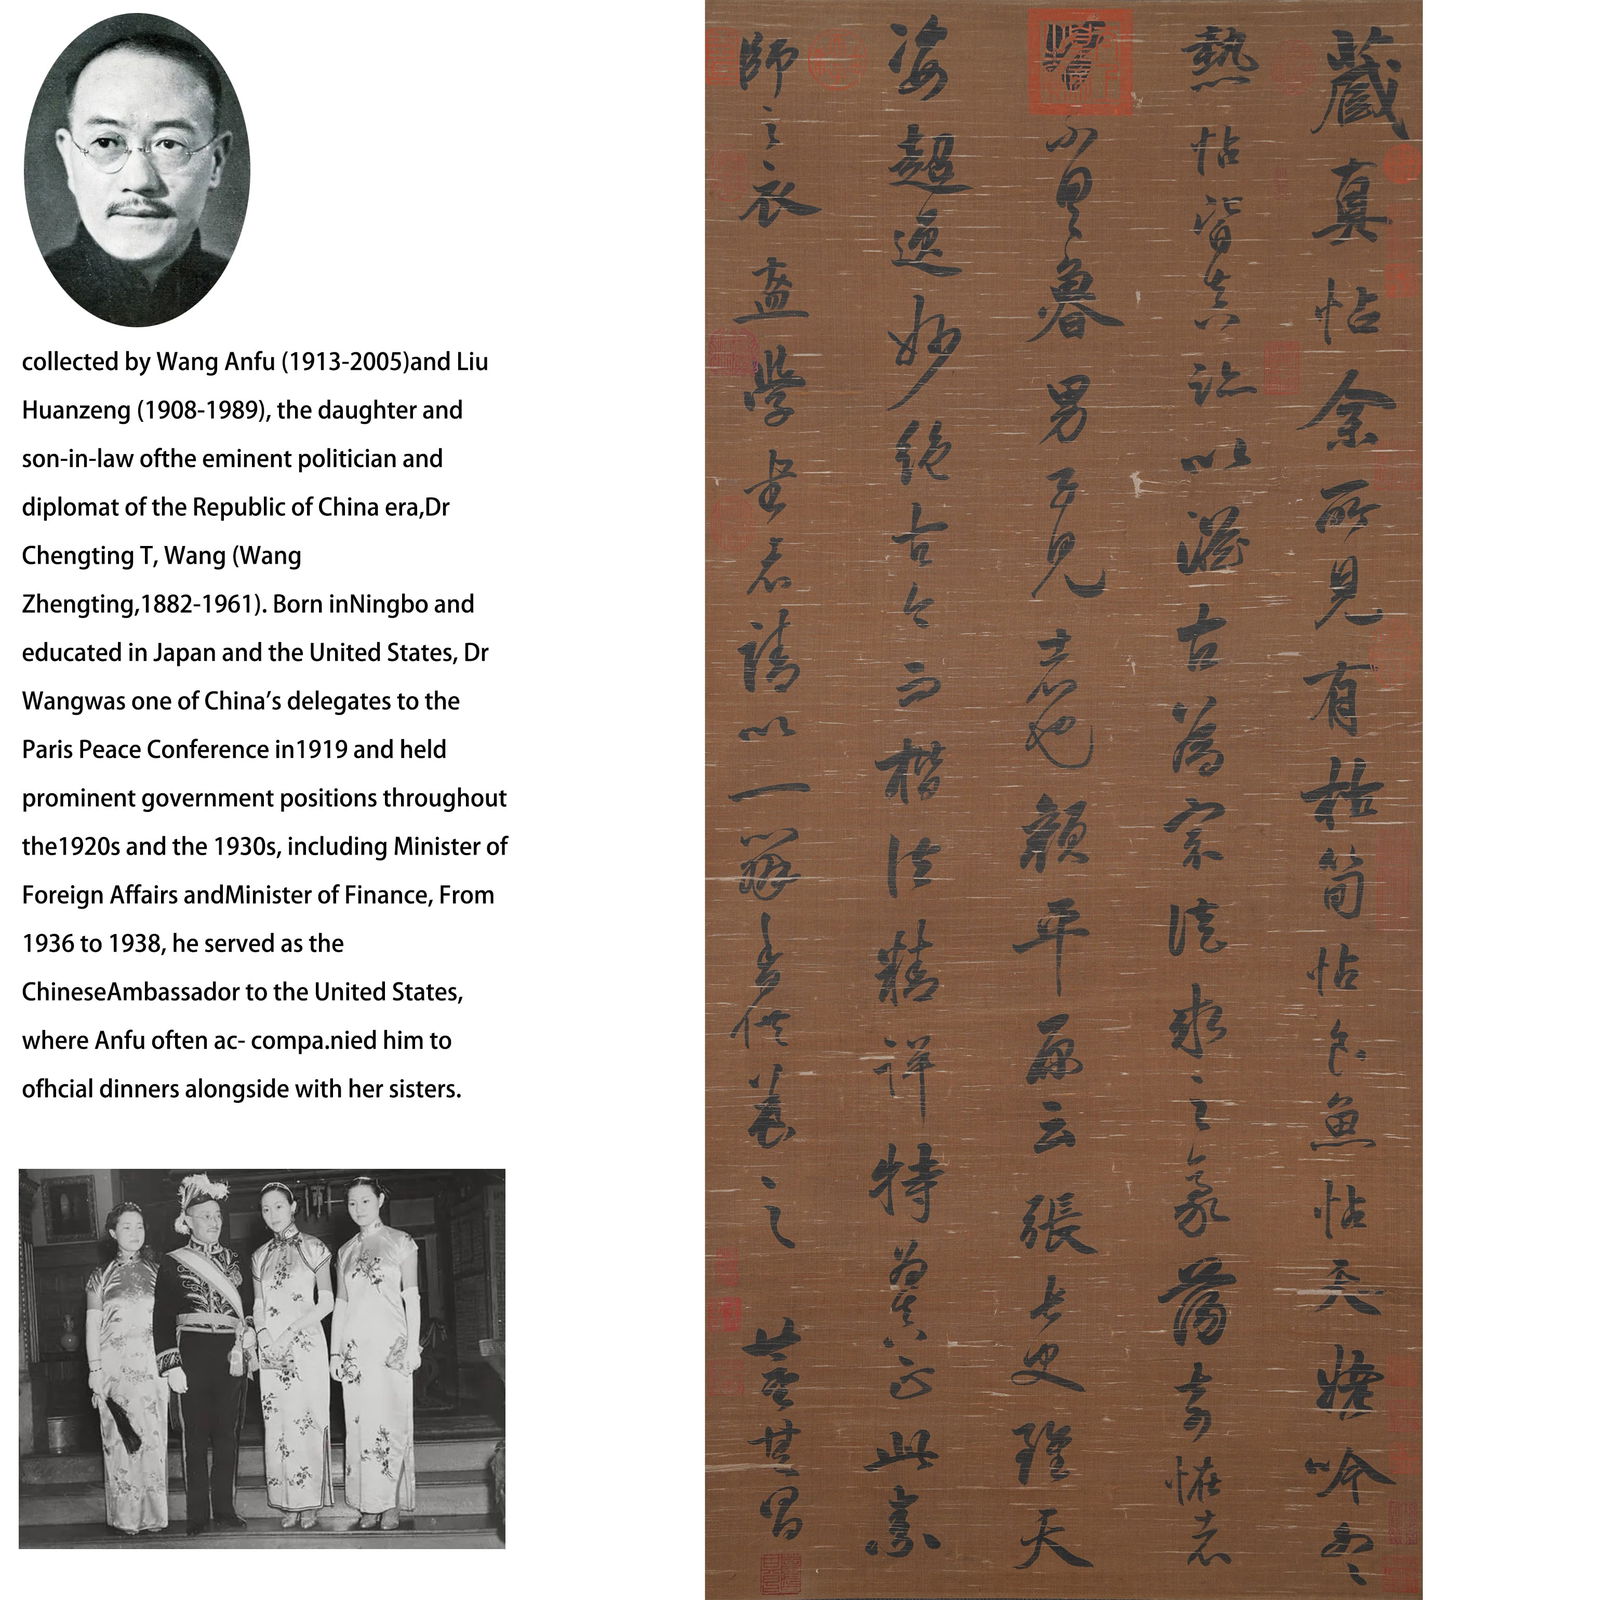 collected by Wang Anfu (1913-2005)and Liu
Huanzeng (1908-1989), the daughter and
son-in-law ofthe eminent politician and
diplomat of the Republic of China era,Dr
Chengting T, Wang (Wang
Zhengting,1882-1961). Born inNingbo and
educated in Japan and the United States, Dr
Wangwas one of China’s delegates to the
Paris Peace Conference in1919 and held
prominent government positions throughout
the1920s and the 1930s, including Minister of
Foreign Affairs andMinister of Finance, From
1936 to 1938, he served as the
ChineseAmbassador to the United States,
where Anfu often ac- compa.nied him to
ofhcial dinners alongside with her sisters.
藏真帖余所見有枯筍帖食魚帖天姥吟冬
熱帖皆真跡以澹古為宗徒求之豪蕩奇怪者
不具魯男子見者也顏平原云張長史雖天
姿超逸妙絕古今而楷法精詳特為真正此素
師之衣盋學書者請以一瓣香供養之 董其昌